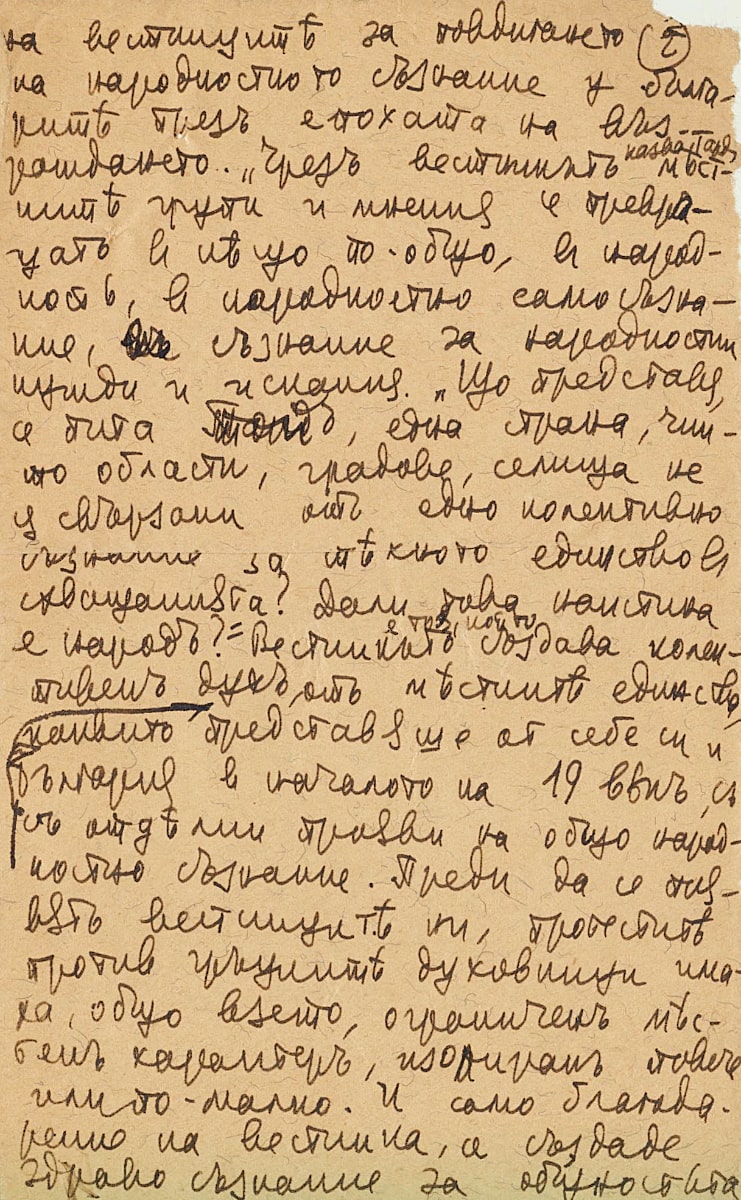 на вестницитѣ за повдигането 2
на народностното съзнание у бълга-
ритѣ презъ епохата на въз-
раждането. „Чрезъ вестникътъ казва Тардъ мѣст-
нитѣ групи и мнения се превръ-
щатъ въ нѣщо по-общо, въ народ-
ность, въ народностно самосъзна-
ние, съзнание за народностни
нужди и искания. „Що представя,
се пита Тардъ, една страна, чии-
то области, градове, селища не
сѫ свързани отъ едно колективно
съзнание за тѣхното единство въ
схващанията? Дали това наистина
е народъ?“ Вестникътъ е този, който създава колек-
тивенъ духъ, отъ мѣстнитѣ единства,
каквито представяше от себе си и
България в началото на 19 вѣкъ, съ
съ отдѣлни прояви на общо народ-
ностно съзнание. Преди да се поя-
вятъ вестницитѣ ни, протеститѣ
против гръцкитѣ духовници има-
ха, общо взето, ограниченъ мѣс-
тенъ характеръ, изолиранъ повече
или по-малко. И само благода-
рение на вестника, се създаде
здраво съзнание за общностьта